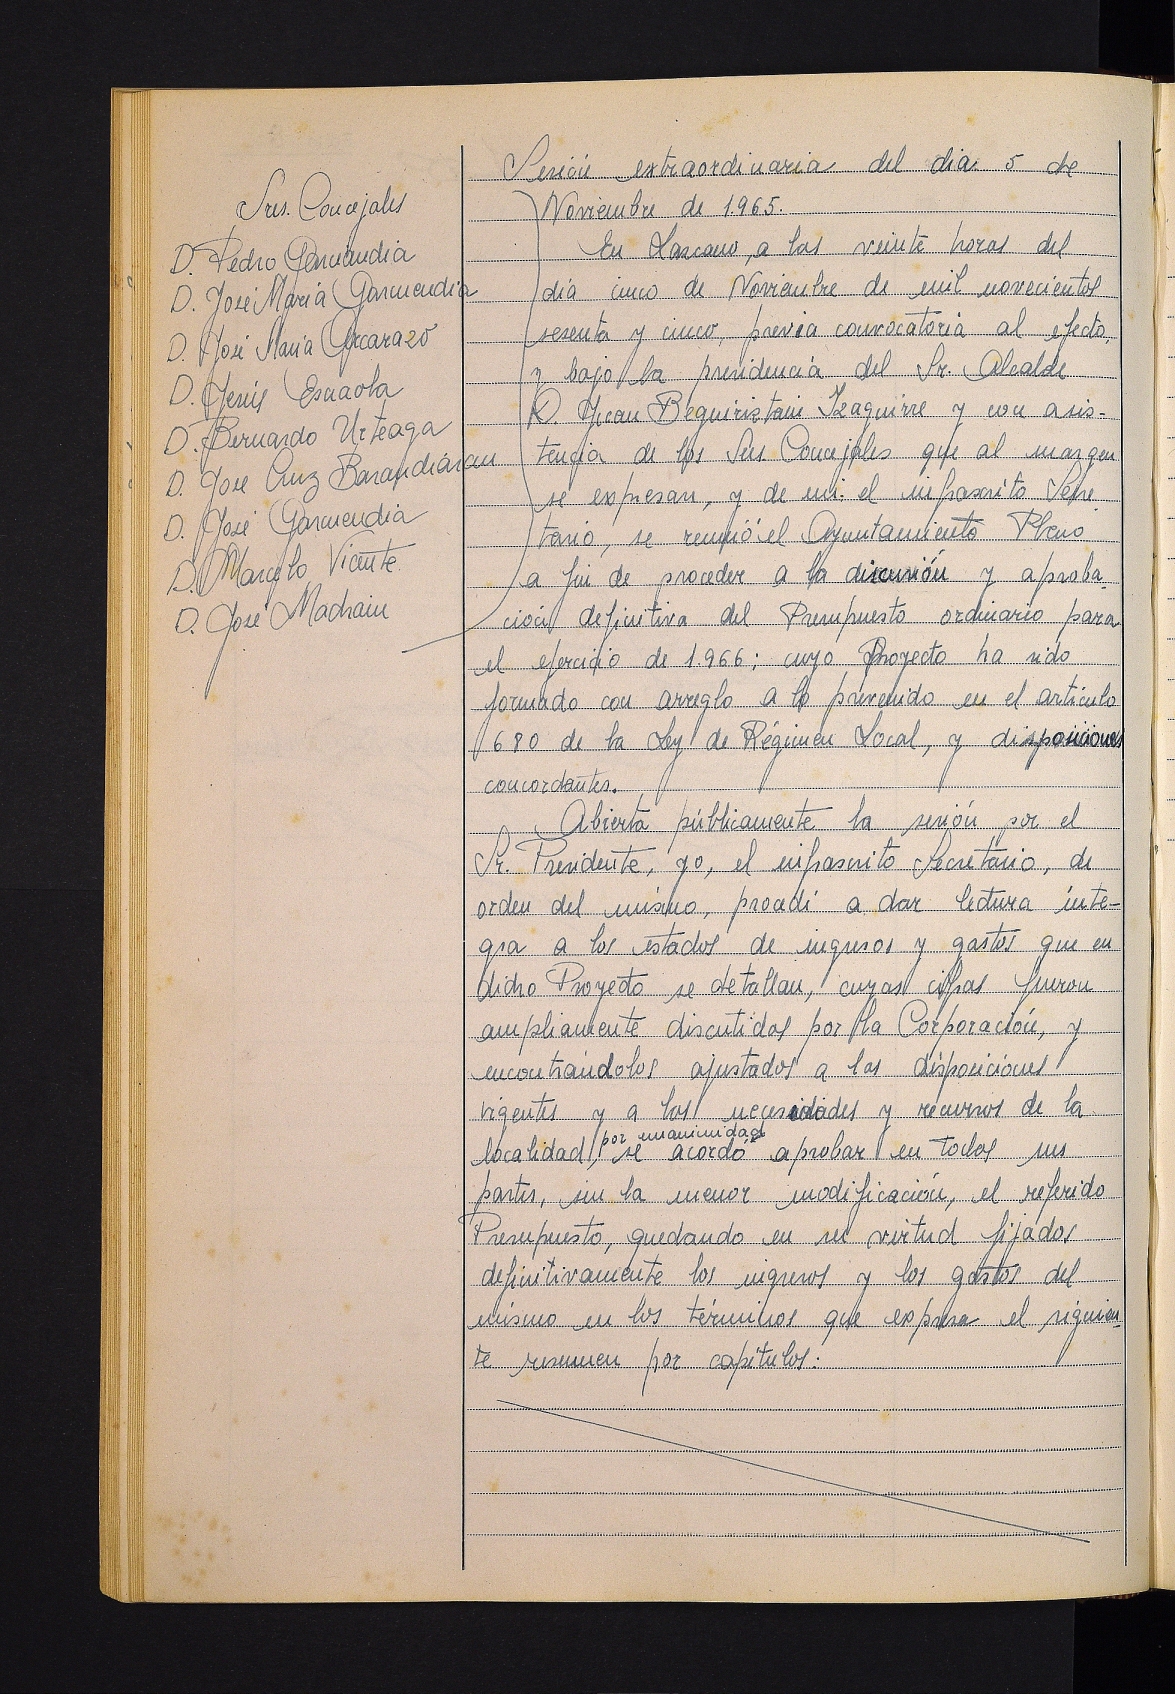 Sres. Concejales
D. Pedro Garmendia
D. José María Garmendia
D. José María Ascarazo
D. Jesús Esnaola
D. Bernardo Urteaga
D. José Cruz Barandiáran
D. José Garmendia
D. Marcelo Vicente
D. José Madrain
Sesión extraordinaria del dia 5 de
Noviembre de 1.965.
En Lazcano, a las veinte horas del
día cinco de Noviembre de mil novecientos
sesenta y cinco, previa convocatoria al efecto,
y bajo la presidencia del Sr. Alcalde
D. Juan Beguiristain Izaguirre y con asis-
tencia de los Sres. Concejales que al margen
se expresan, y de mi el infrascrito Secre-
tario, se reunió el Ayuntamiento Pleno
a fin de proceder a la discusión y aproba-
ción definitiva del Presupuesto ordinario para
el ejercicio de 1.966; cuyo Proyecto ha sido
formado con arreglo a lo prevenido en el artículo
680 de la Ley de Régimen Local, y disposiciones
concordantes.
Abierta públicamente la sesión por el
Sr. Presidente, yo, el infrascrito Secretario, de
orden del mismo, procedí a dar lectura ínte-
gra a los estados de ingresos y gastos que en
dicho Proyecto se detallan, cuyas cifras fueron
ampliamente discutidas por la Corporación, y
encontrándolos ajustados a las disposiciones
vigentes y a las necesidades y recursos de la
localidad, por unanimidad se acordó aprobar en todas sus
partes, sin la menor modificación, el referido
Presupuesto, quedando en su virtud fijados
definitivamente los ingresos y los gastos del
mismo en los términos que expresa el siguien-
te resumen por capítulos: